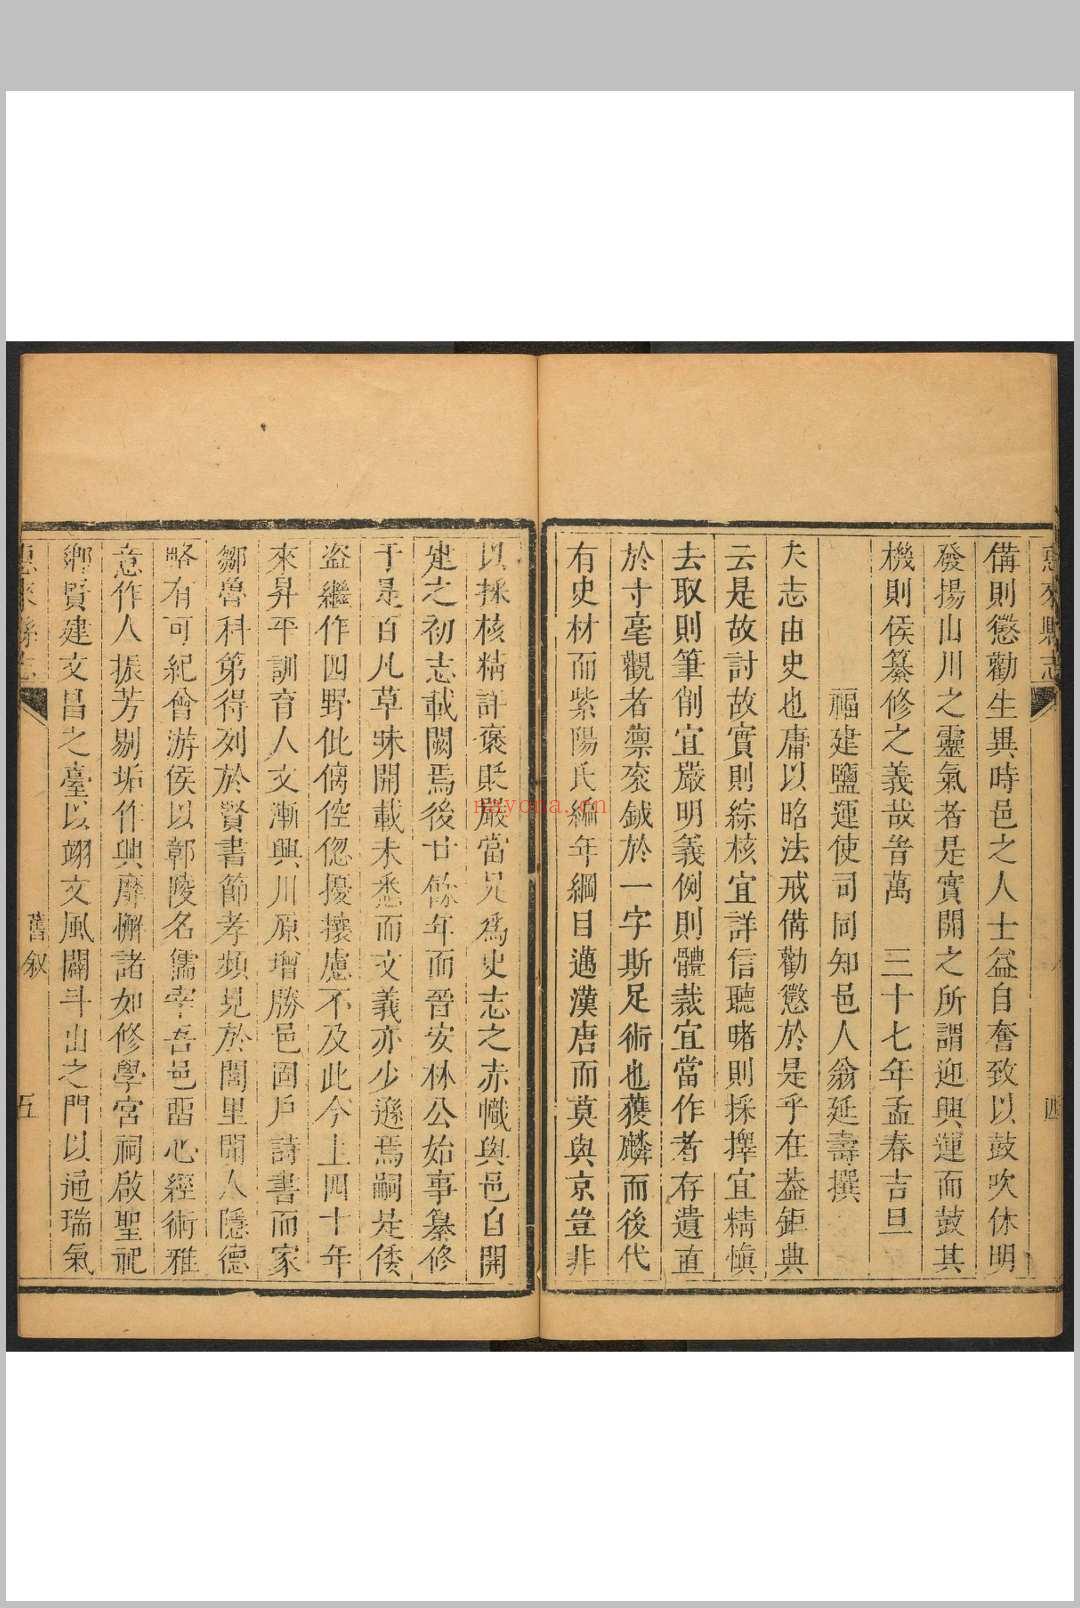 惠來縣志
四
備則懲勸生異時邑之人士益自奮致以鼓吹休明
發揚山川之靈氣者是實開之所謂迎興運而鼓其
機則侯纂修之義哉旹萬 三十七年孟春吉旦
福建鹽運使司同知邑人翁延壽撰
夫志由史也庸以昭法戒備勸懲於是乎在葢鉅典
云是故討故實則綜核宜詳信聽睹則採擇宜精愼
去取則筆削宜嚴明義例則體裁宜當作者存遺直
於寸毫觀者凛衮鉞於一字斯足術也獲麟而後代
有史材而紫陽氏編年綱目邁漢唐而莫與京豈非
以採核精詳褒貶嚴當足爲史志之赤幟與邑自開
建之初志載闕焉後廿餘年而晉安林公始事纂修
于是百凡草昧開載未悉而文義亦少遜焉嗣是倭
盗繼作四野仳㒧倥偬擾攘慮不及此今上四十年
來昇平訓育人文漸興川原增勝邑固戶詩書而家
鄒魯科第得列於賢書節孝頻見於閭里聞人隱德
略有可紀會游侯以鄣陵名儒宰吾邑畱心經術雅
意作人振芳剔垢作興靡懈諸如修學宮祠啟聖祀
鄉賢建文昌之臺以翊文風闢斗山之門以通瑞氣
惠來縣志
舊叙
五
nayona.cn